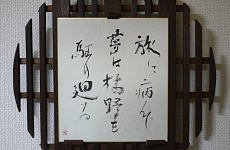 旅に病んで
夢は枯野を
駆け廻る